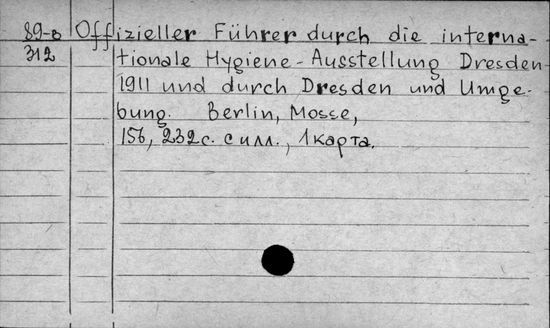 89-в Offizieller Führer durch die interna-
312 tionale Hygiene-Ausstellung Dresden
1911 und durch Dresden und Umge-
bung. Berlin, Mosse,
156, 232с. с илл., 1 карта.